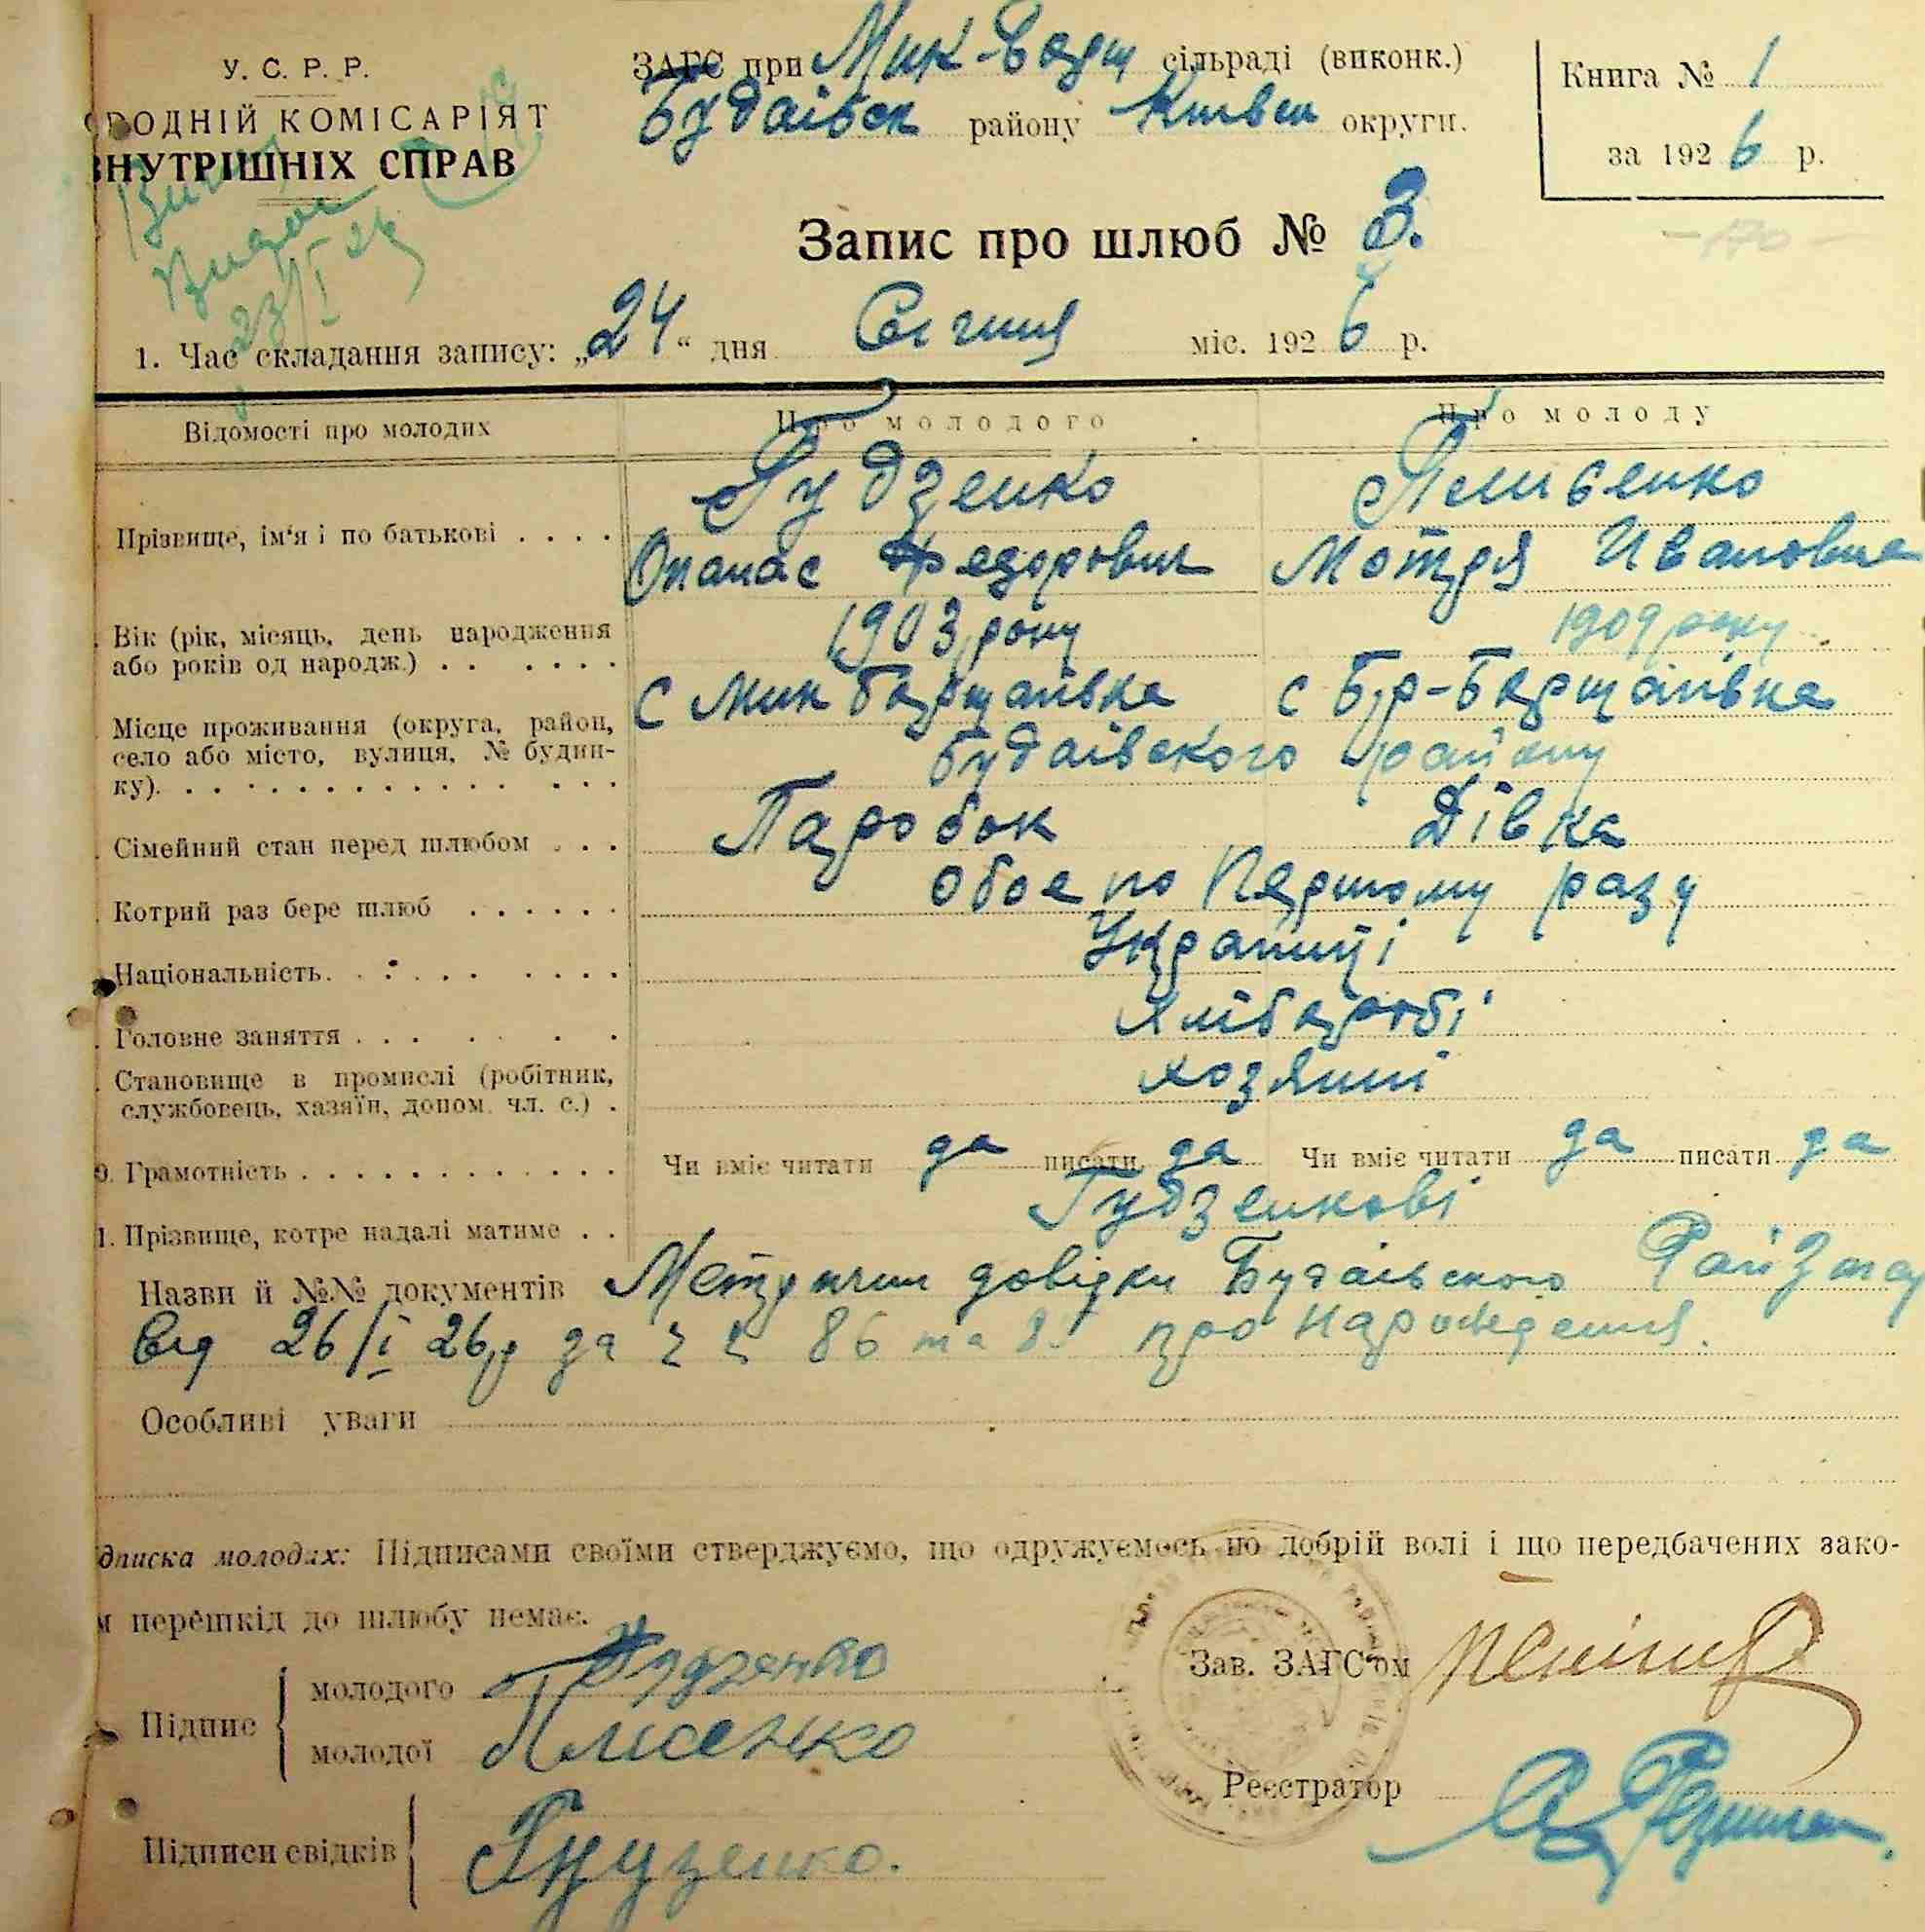 У. С. Р. Р.
РОДНІЙ КОМІСАРІЯТ
ВНУТРІШНІХ СПРАВ
23/I 26
ЗАГС при Мик-Борщ сільраді (виконк.)
Будаівск району Київск округи.
Книга № 1
за 1926 р.
Запис про шлюб № 3.
- 170 -
1. Час складання запису: „24“ дня Січния міс. 1926 р.
Відомості про молодих Про молодого Про молоду
Прізвище, ім'я і по батькові . . . . Гудзенко
Опанас Федорович Мотря Ивановна
Вік (рік, місяць, день народження 1903 року 1909 року
або років од народж.) . . . . . .
Місце проживання (округа, район, с Мик Борщаівка с Бр-Борщаівка
село або місто, вулиця, № будин- Будаівского району
ку). . . . . . . . . . . . . . .
Сімейний стан перед шлюбом . . . Паробок Дівка
Котрий раз бере шлюб . . . . . . Обое по Першому разу
Національність. . . . . . . . . Украинці
Головне заняття . . . . . . Хлібаробі
Становище в промислі (робітник, хозяині
службовець, хазяїн, допом. чл. с.) .
0. Грамотність . . . . . . . . . . . . Чи вміє читати да писати да Чи вміє читати да писати да
1. Прізвище, котре надалі матиме . . Гудзенкові
Назви й №№ документів Метричні довідки Будаівского РайЗагсу
Від 26/I 26р за 86 та про народження.
Особливі уваги
дписка молодих: Підписами своїми стверджуємо, що одружуємось по добрій волі і що передбачених зако-
м перешкід до шлюбу немає.
Підпис
молодого Гудзенко
молодої
Зав. ЗАГС'ом
Реєстратор
Підписи свідків